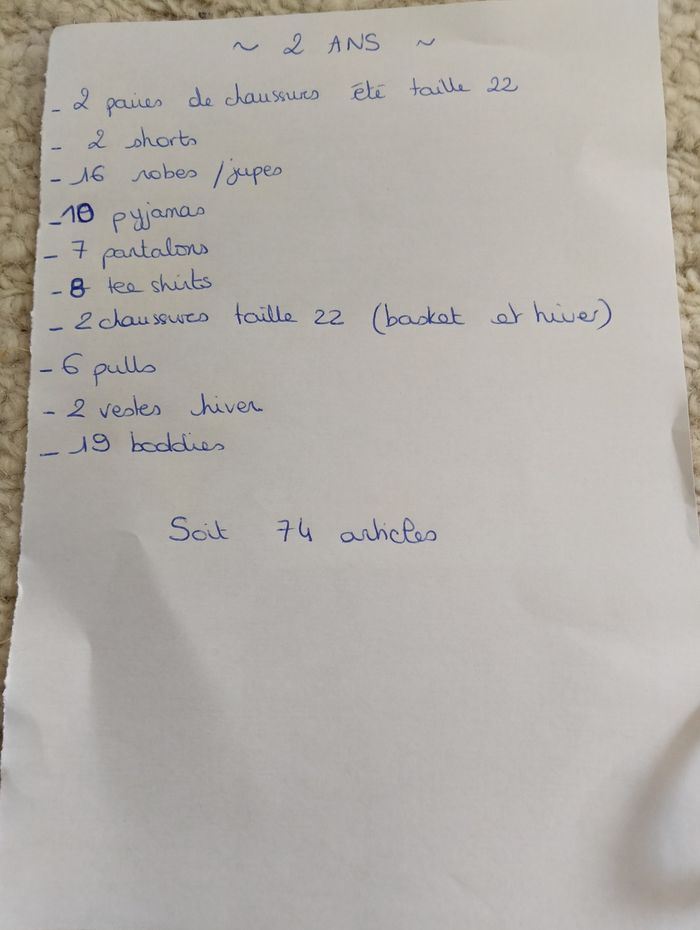 ~ 2 ANS ~
- 2 paires de chaussures été taille 22
- 2 shorts
- 16 robes / jupes
- 10 pyjamas
- 7 pantalons
- 8 tee shirts
- 2 chaussures taille 22 (basket et hiver)
- 6 pulls
- 2 vestes hiver
- 19 boddies
Soit 74 articles